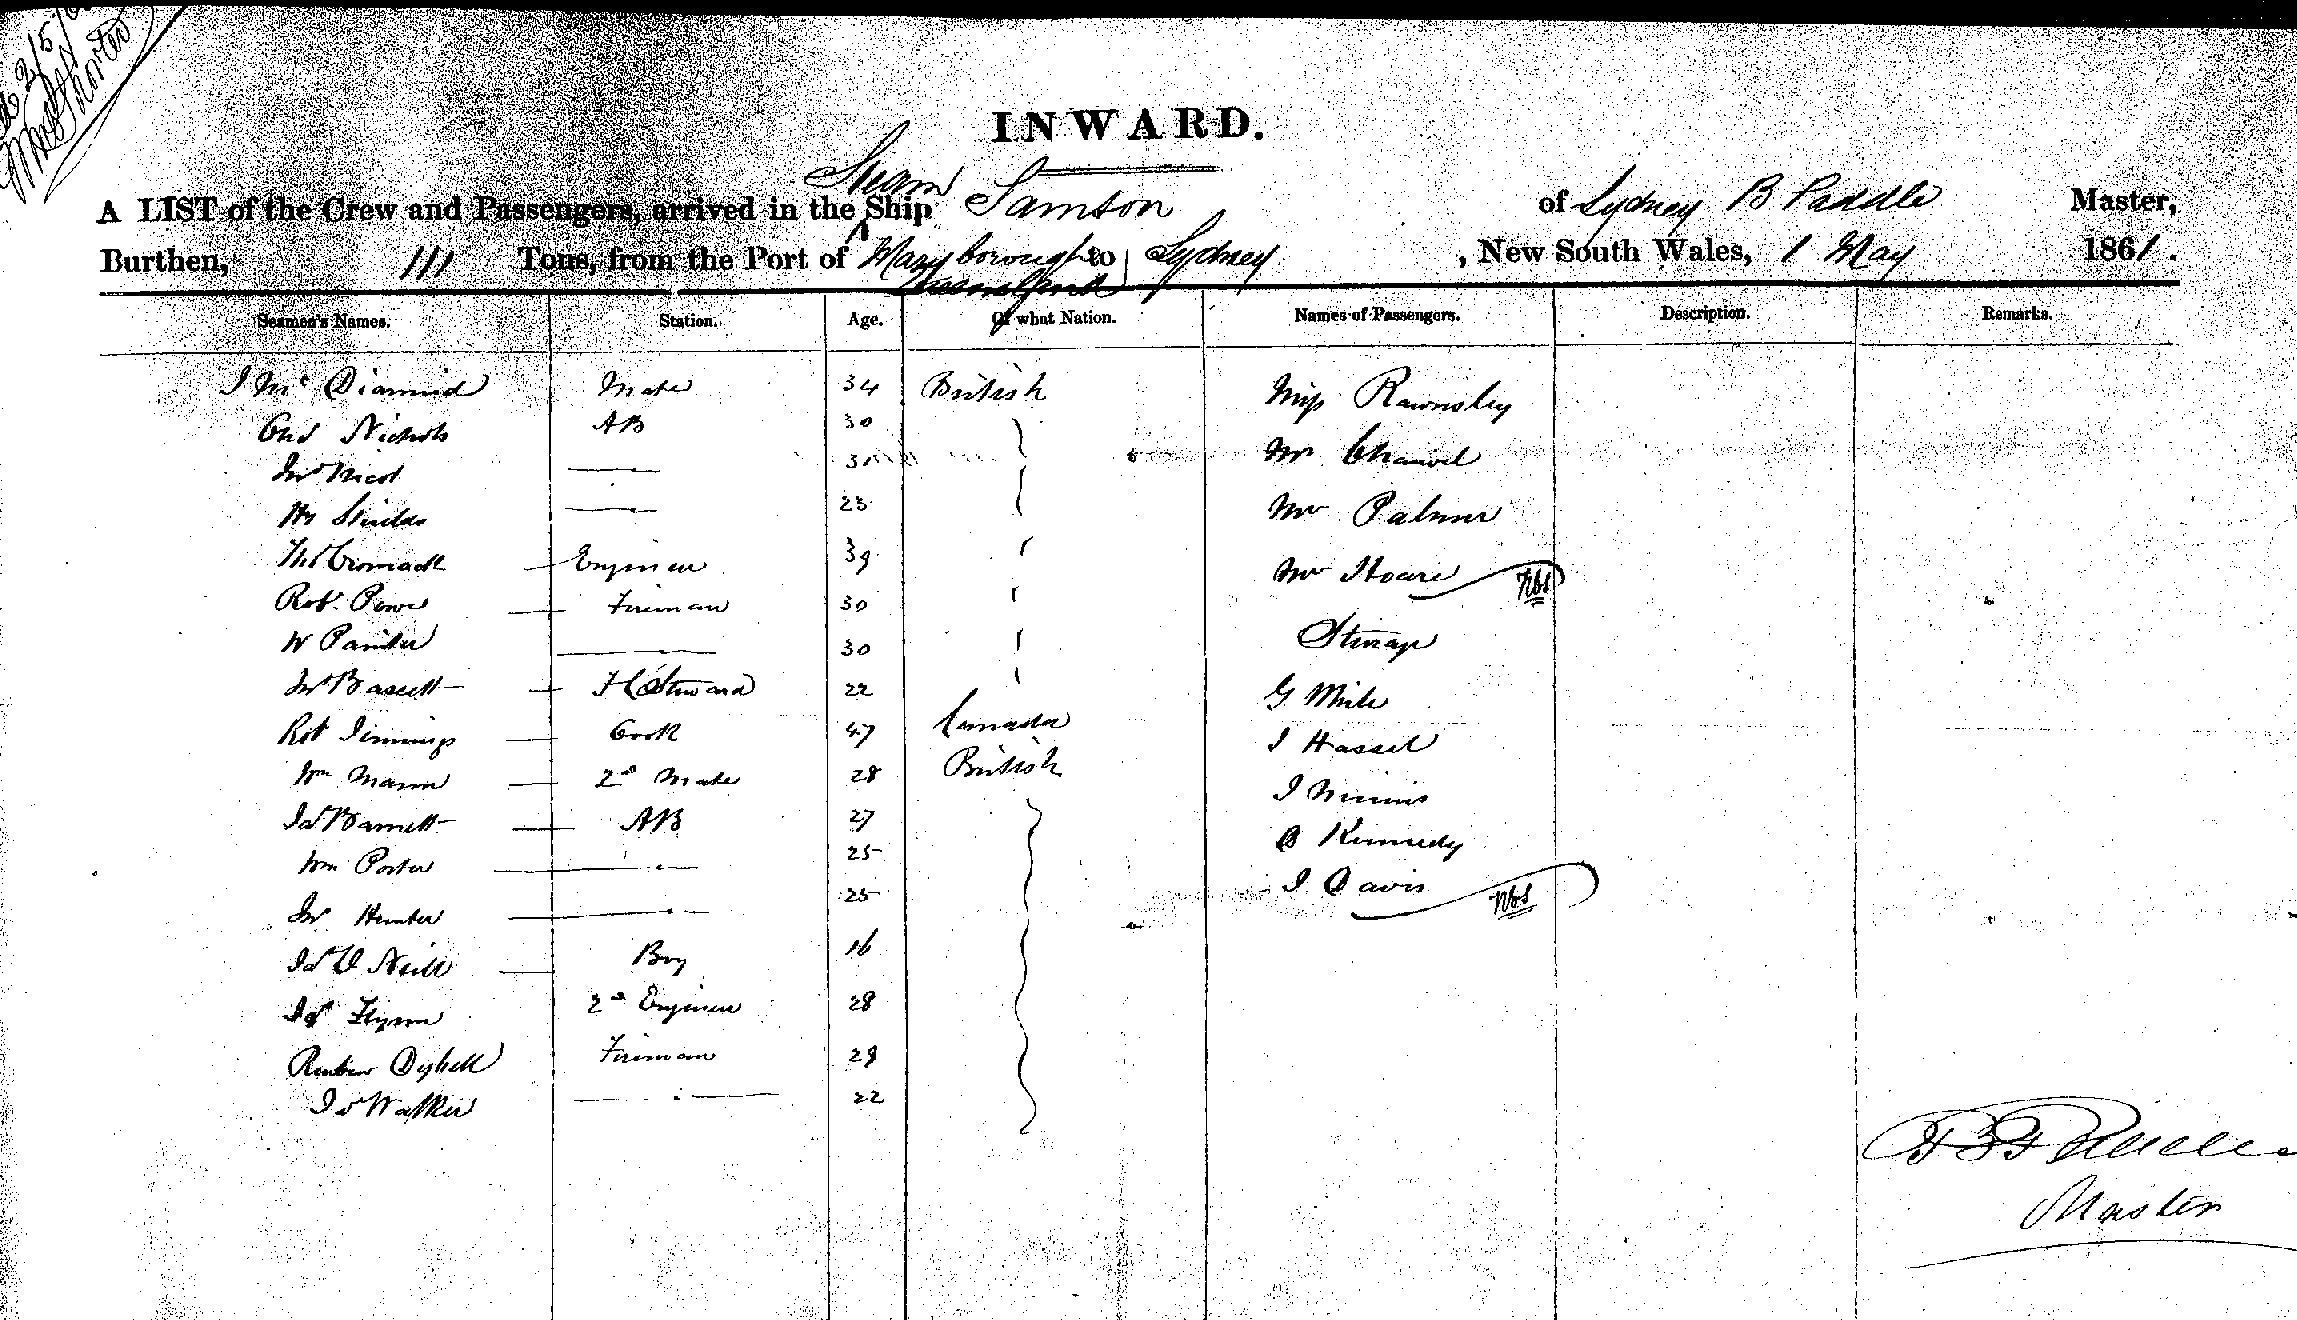 INWARD.
A LIST of the Crew and Passengers, arrived in the Steam Ship Samson of Sydney B Paddle Master,
Burthen, 111 Tons, from the Port of Maryborough to Sydney, New South Wales, 1 May 1861.
Queensland
Seamen's Names. Station. Age. Of what Nation. Names of Passengers. Description. Remarks.
J McDiarmid Mate 34 British Miss Rawnsley
Nichols AB 30 Mr Chauvel
Jno Nicol 30 Mr Palmer
Shields 23
Thos Cromack Engineer 39 Mr Hoare
Robt Power Fireman 30
W Painter 30 Steerage
Jno Bassett Steward 22 G
Robt Jennings Cook 47 Canada J Hassel
Wm Mason 2d Mate 28 British J
Jas Barnett AB 27 B Kennedy
Wm Porter 25
Jno Hunter 25 J Davis
Jas O Neill Boy 16
Jas Flynn 2d Engineer 28
Reuben Fireman 29
Jas Walker 22
Master